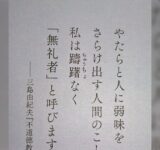 やたらと人に弱味を
さらけ出す人間のこ
私は躊躇なく
ちゅうちょ
『無礼者』と呼びます
――三島由紀夫『不道徳教